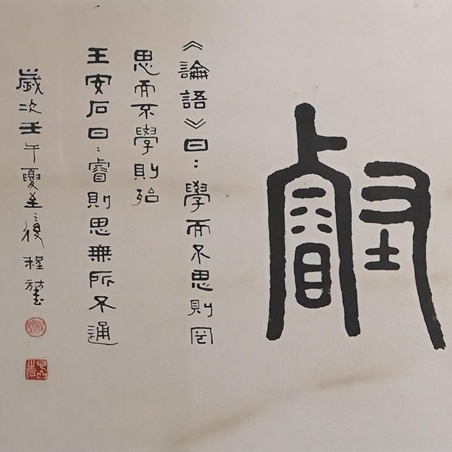 叡
《論語》曰：學而不思則罔
思而不學則殆
王安石曰：睿則思無所不通
歲次壬午夏至之後